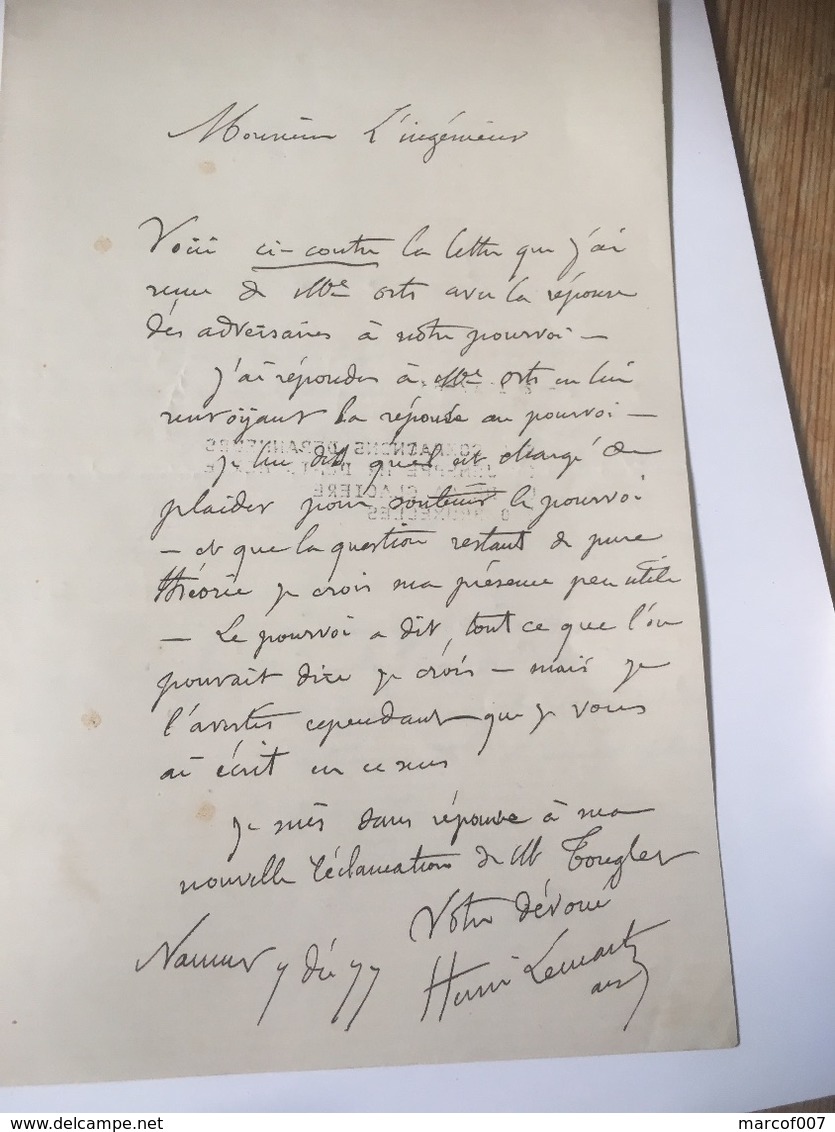 Monsieur L'ingénieur
Voici ci-contre la lettre que j'ai
reçue de Me orts avec la réponse
des adversaires à notre pourvoi —
j'ai répondu à Me orts en lui
renvoyant la réponse au pourvoi —
je lui dis qu'il est chargé de
plaider pour soutenir le pourvoi
— et que la question restant de pure
théorie je crois ma présence peu utile
— Le pourvoi a dit, tout ce que l'on
pouvait dire je crois — mais je
l'avertis cependant que je vous
ai écrit en ce sens
Je suis sans réponse à ma
nouvelle réclamation de M Tougler
Votre dévoué
Namur 7 Déc 77
Henri Lemart
COMPAGNONS DEPANNEURS
GLACIERE
BRUXELLES
marcof007